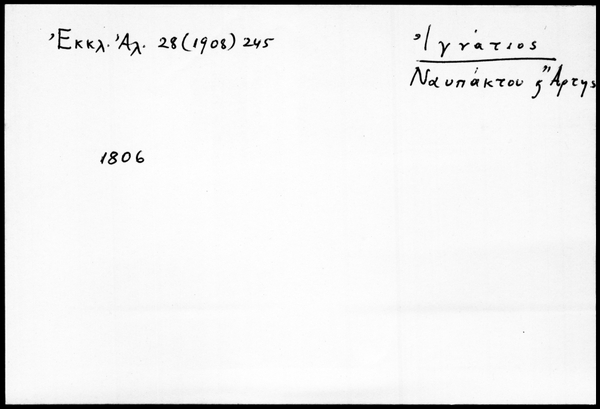 Ἐκκλ. Ἀλ. 28 (1908) 245
Ἰγνάτιος
Ναυπάκτου ϛ Ἄρτης
1806